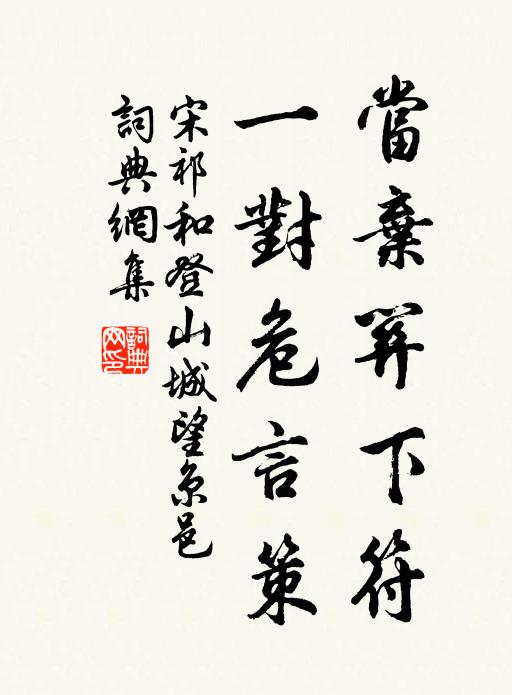 當棄笄下符
一對危言策
宋祁和登山城望京邑
詞典網集
詞典網印